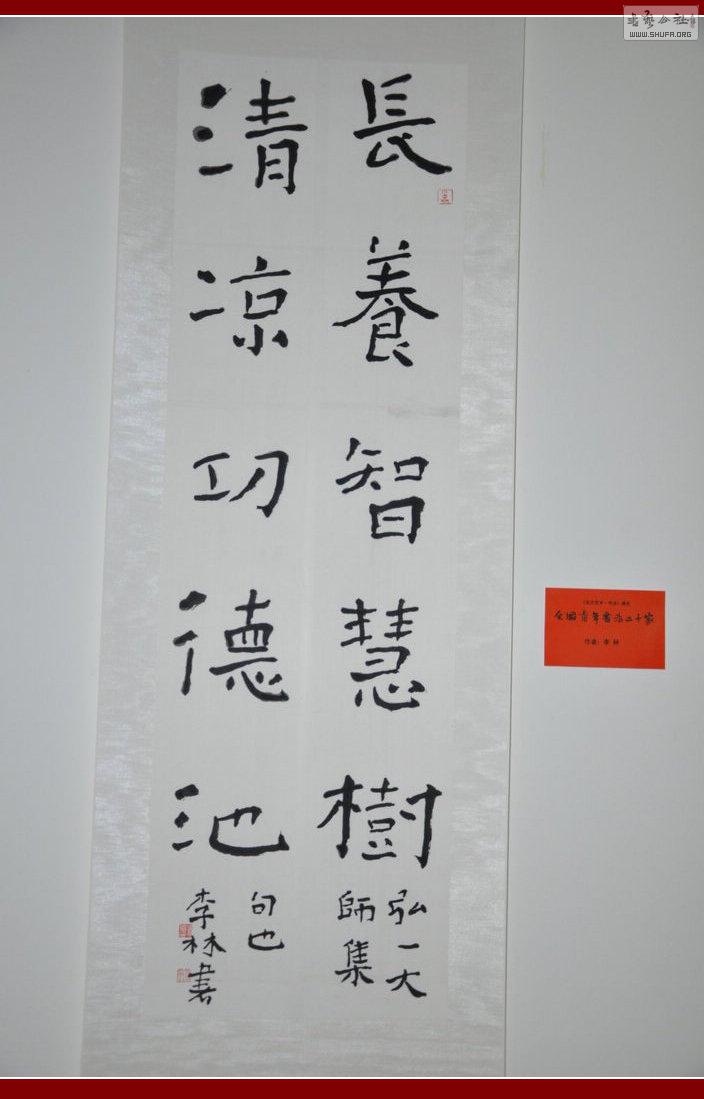 長養智慧樹
清凉功德池
弘一大
師集
句也
李林書
全國青年書法二十家
作者：李林
書藝公社
WWW.SHUFA.ORG